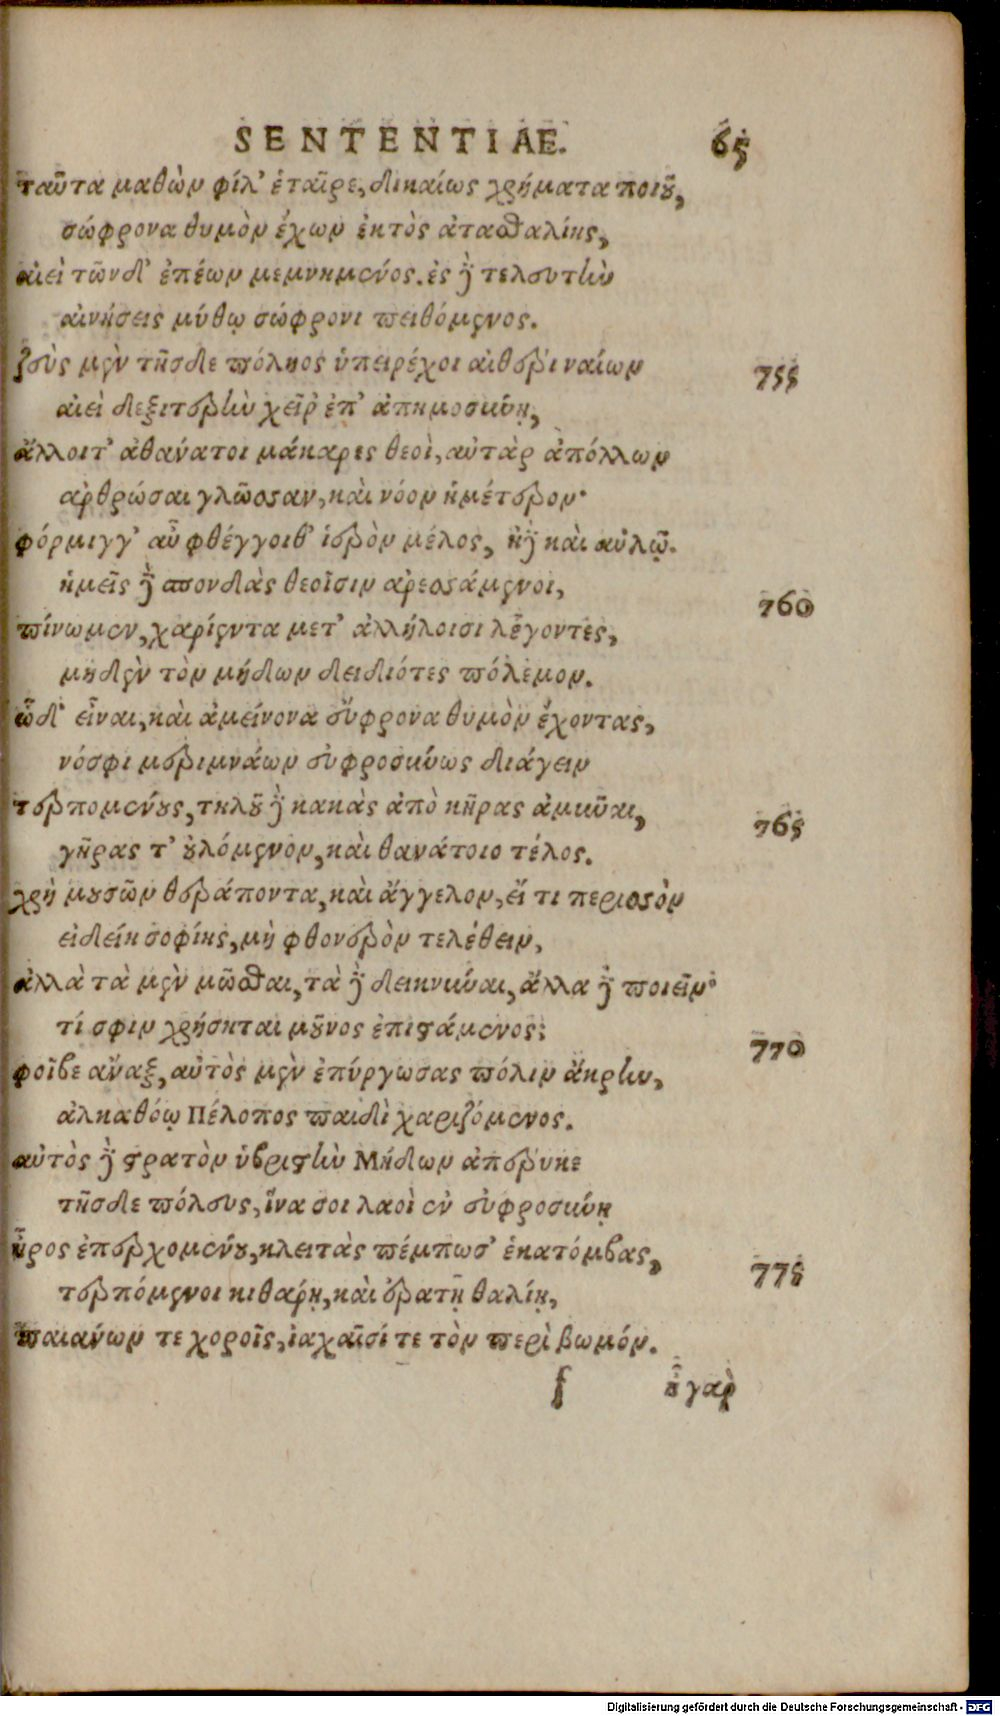 SENTENTIAE. 65
ταῦτα μαθὼν φίλ' ἑταῖρε, δικαίως χρήματα ποιοῦ,
σώφρονα θυμὸν ἔχων ἐκτὸς ἀτασθαλίης,
αἰεὶ τῶνδ' ἐπέων μεμνημένος. ἐς δὲ τελευτὴν
αἰνήσεις μύθῳ σώφρονι πειθόμενος.
ζεὺς μὲν τῆσδε πόληος ὑπειρέχοι αἰθέρι ναίων 755
αἰεὶ δεξιτερὴν χεῖρ ἐπ' ἀπημοσύνῃ,
ἄλλοιτ' ἀθανάτοι μάκαρες θεοὶ, αὐτὰρ ἀπόλλων
ἀρθρώσαι γλῶσσαν, καὶ νόον ἡμέτερον·
φόρμιγγ' αὖ φθέγγοιθ' ἱερὸν μέλος, ἠδὲ καὶ αὐλῷ.
ἡμεῖς δὲ σπονδὰς θεοῖσιν ἀρεσσάμενοι, 760
πίνωμεν, χαρίεντα μετ' ἀλλήλοισι λέγοντες,
μηδὲν τὸν μήδων δειδιότες πόλεμον.
ὧδ' εἶναι, καὶ ἀμείνονα εὔφρονα θυμὸν ἔχοντας,
νόσφι μεριμνάων εὐφροσύνως διάγειν
τερπομένους, τηλοῦ δὲ κακὰς ἀπὸ κῆρας ἀμῦναι, 765
γῆρας τ' οὐλόμενον, καὶ θανάτοιο τέλος.
χρὴ μουσῶν θεράποντα, καὶ ἄγγελον, εἴ τι περισσὸν
εἰδείη σοφίης, μὴ φθονερὸν τελέθειν,
ἀλλὰ τὰ μὲν μῶσθαι, τὰ δὲ δεικνύναι, ἄλλα δὲ ποιεῖν·
τί σφιν χρήσηται μοῦνος ἐπιστάμενος; 770
φοῖβε ἄναξ, αὐτὸς μὲν ἐπύργωσας πόλιν ἄκρην,
ἀλκαθόῳ Πέλοπος παιδὶ χαριζόμενος.
αὐτὸς δὲ στρατὸν ὑβριστὴν Μήδων ἀπέρυκε
τῆσδε πόλευς, ἵνα σοι λαοὶ ἐν εὐφροσύνῃ
ἦρος ἐπερχομένου, κλειτὰς πέμπωσ' ἑκατόμβας, 775
τερπόμενοι κιθάρῃ, καὶ ἐρατῇ θαλίῃ,
παιάνων τε χοροῖς, ἰαχαῖσί τε τὸν περὶ βωμόν.
f ἦ γαρ
Digitalisierung gefördert durch die Deutsche Forschungsgemeinschaft - DFG